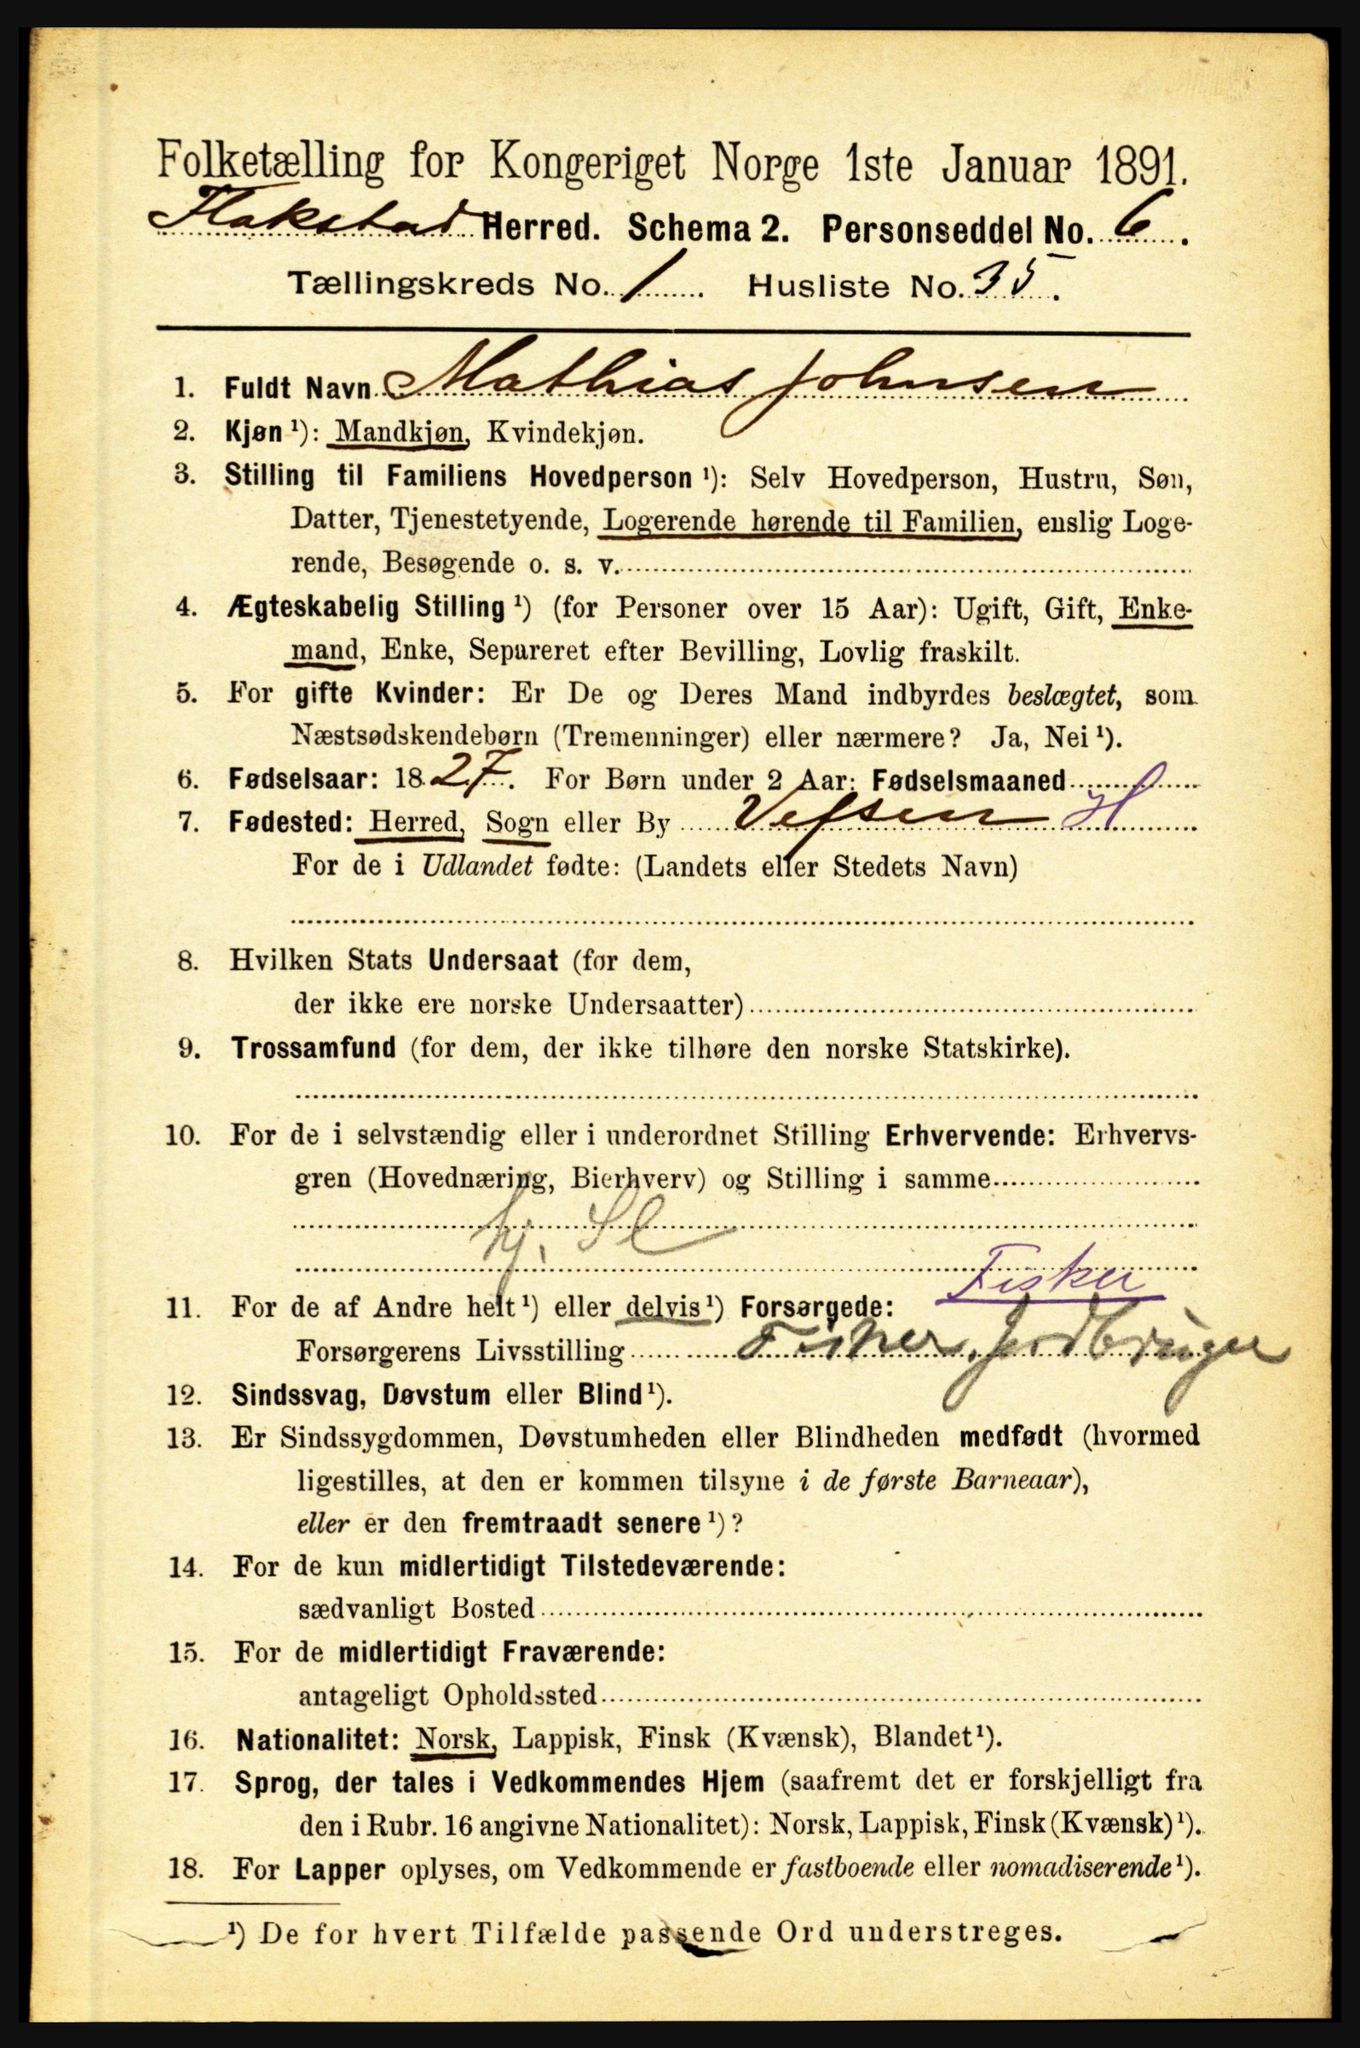 Folketælling for Kongeriget Norge 1ste Januar 1891.
Flakstad Herred. Schema 2. Personseddel No. 6.
Tællingskreds No. 1 Husliste No. 35.
1. Fuldt Navn Mathias Johnsen
2. Kjøn ¹): Mandkjøn, Kvindekjøn.
3. Stilling til Familiens Hovedperson ¹): Selv Hovedperson, Hustru, Søn,
Datter, Tjenestetyende, Logerende hørende til Familien, enslig Loge-
rende, Besøgende o. s. v.
4. Ægteskabelig Stilling ¹) (for Personer over 15 Aar): Ugift, Gift, Enke-
mand, Enke, Separeret efter Bevilling, Lovlig fraskilt.
5. For gifte Kvinder: Er De og Deres Mand indbyrdes beslægtet, som
Næstsødskendebørn (Tremenninger) eller nærmere? Ja, Nei ¹).
6. Fødselsaar: 1827. For Børn under 2 Aar: Fødselsmaaned
7. Fødested: Herred, Sogn eller By Vefsen H
For de i Udlandet fødte: (Landets eller Stedets Navn)
8. Hvilken Stats Undersaat (for dem,
der ikke ere norske Undersaatter)
9. Trossamfund (for dem, der ikke tilhøre den norske Statskirke).
10. For de i selvstændig eller i underordnet Stilling Erhvervende: Erhvervs-
gren (Hovednæring, Bierhverv) og Stilling i samme
hj. Sl
Fisker
11. For de af Andre helt ¹) eller delvis ¹) Forsørgede:
Forsørgerens Livsstilling Fisker, Jordbruger
12. Sindssvag, Døvstum eller Blind ¹).
13. Er Sindssygdommen, Døvstumheden eller Blindheden medfødt (hvormed
ligestilles, at den er kommen tilsyne i de første Barneaar),
eller er den fremtraadt senere ¹)?
14. For de kun midlertidigt Tilstedeværende:
sædvanligt Bosted
15. For de midlertidigt Fraværende:
antageligt Opholdssted
16. Nationalitet: Norsk, Lappisk, Finsk (Kvænsk), Blandet ¹).
17. Sprog, der tales i Vedkommendes Hjem (saafremt det er forskjelligt fra
den i Rubr. 16 angivne Nationalitet): Norsk, Lappisk, Finsk (Kvænsk) ¹).
18. For Lapper oplyses, om Vedkommende er fastboende eller nomadiserende ¹).
¹) De for hvert Tilfælde passende Ord understreges.